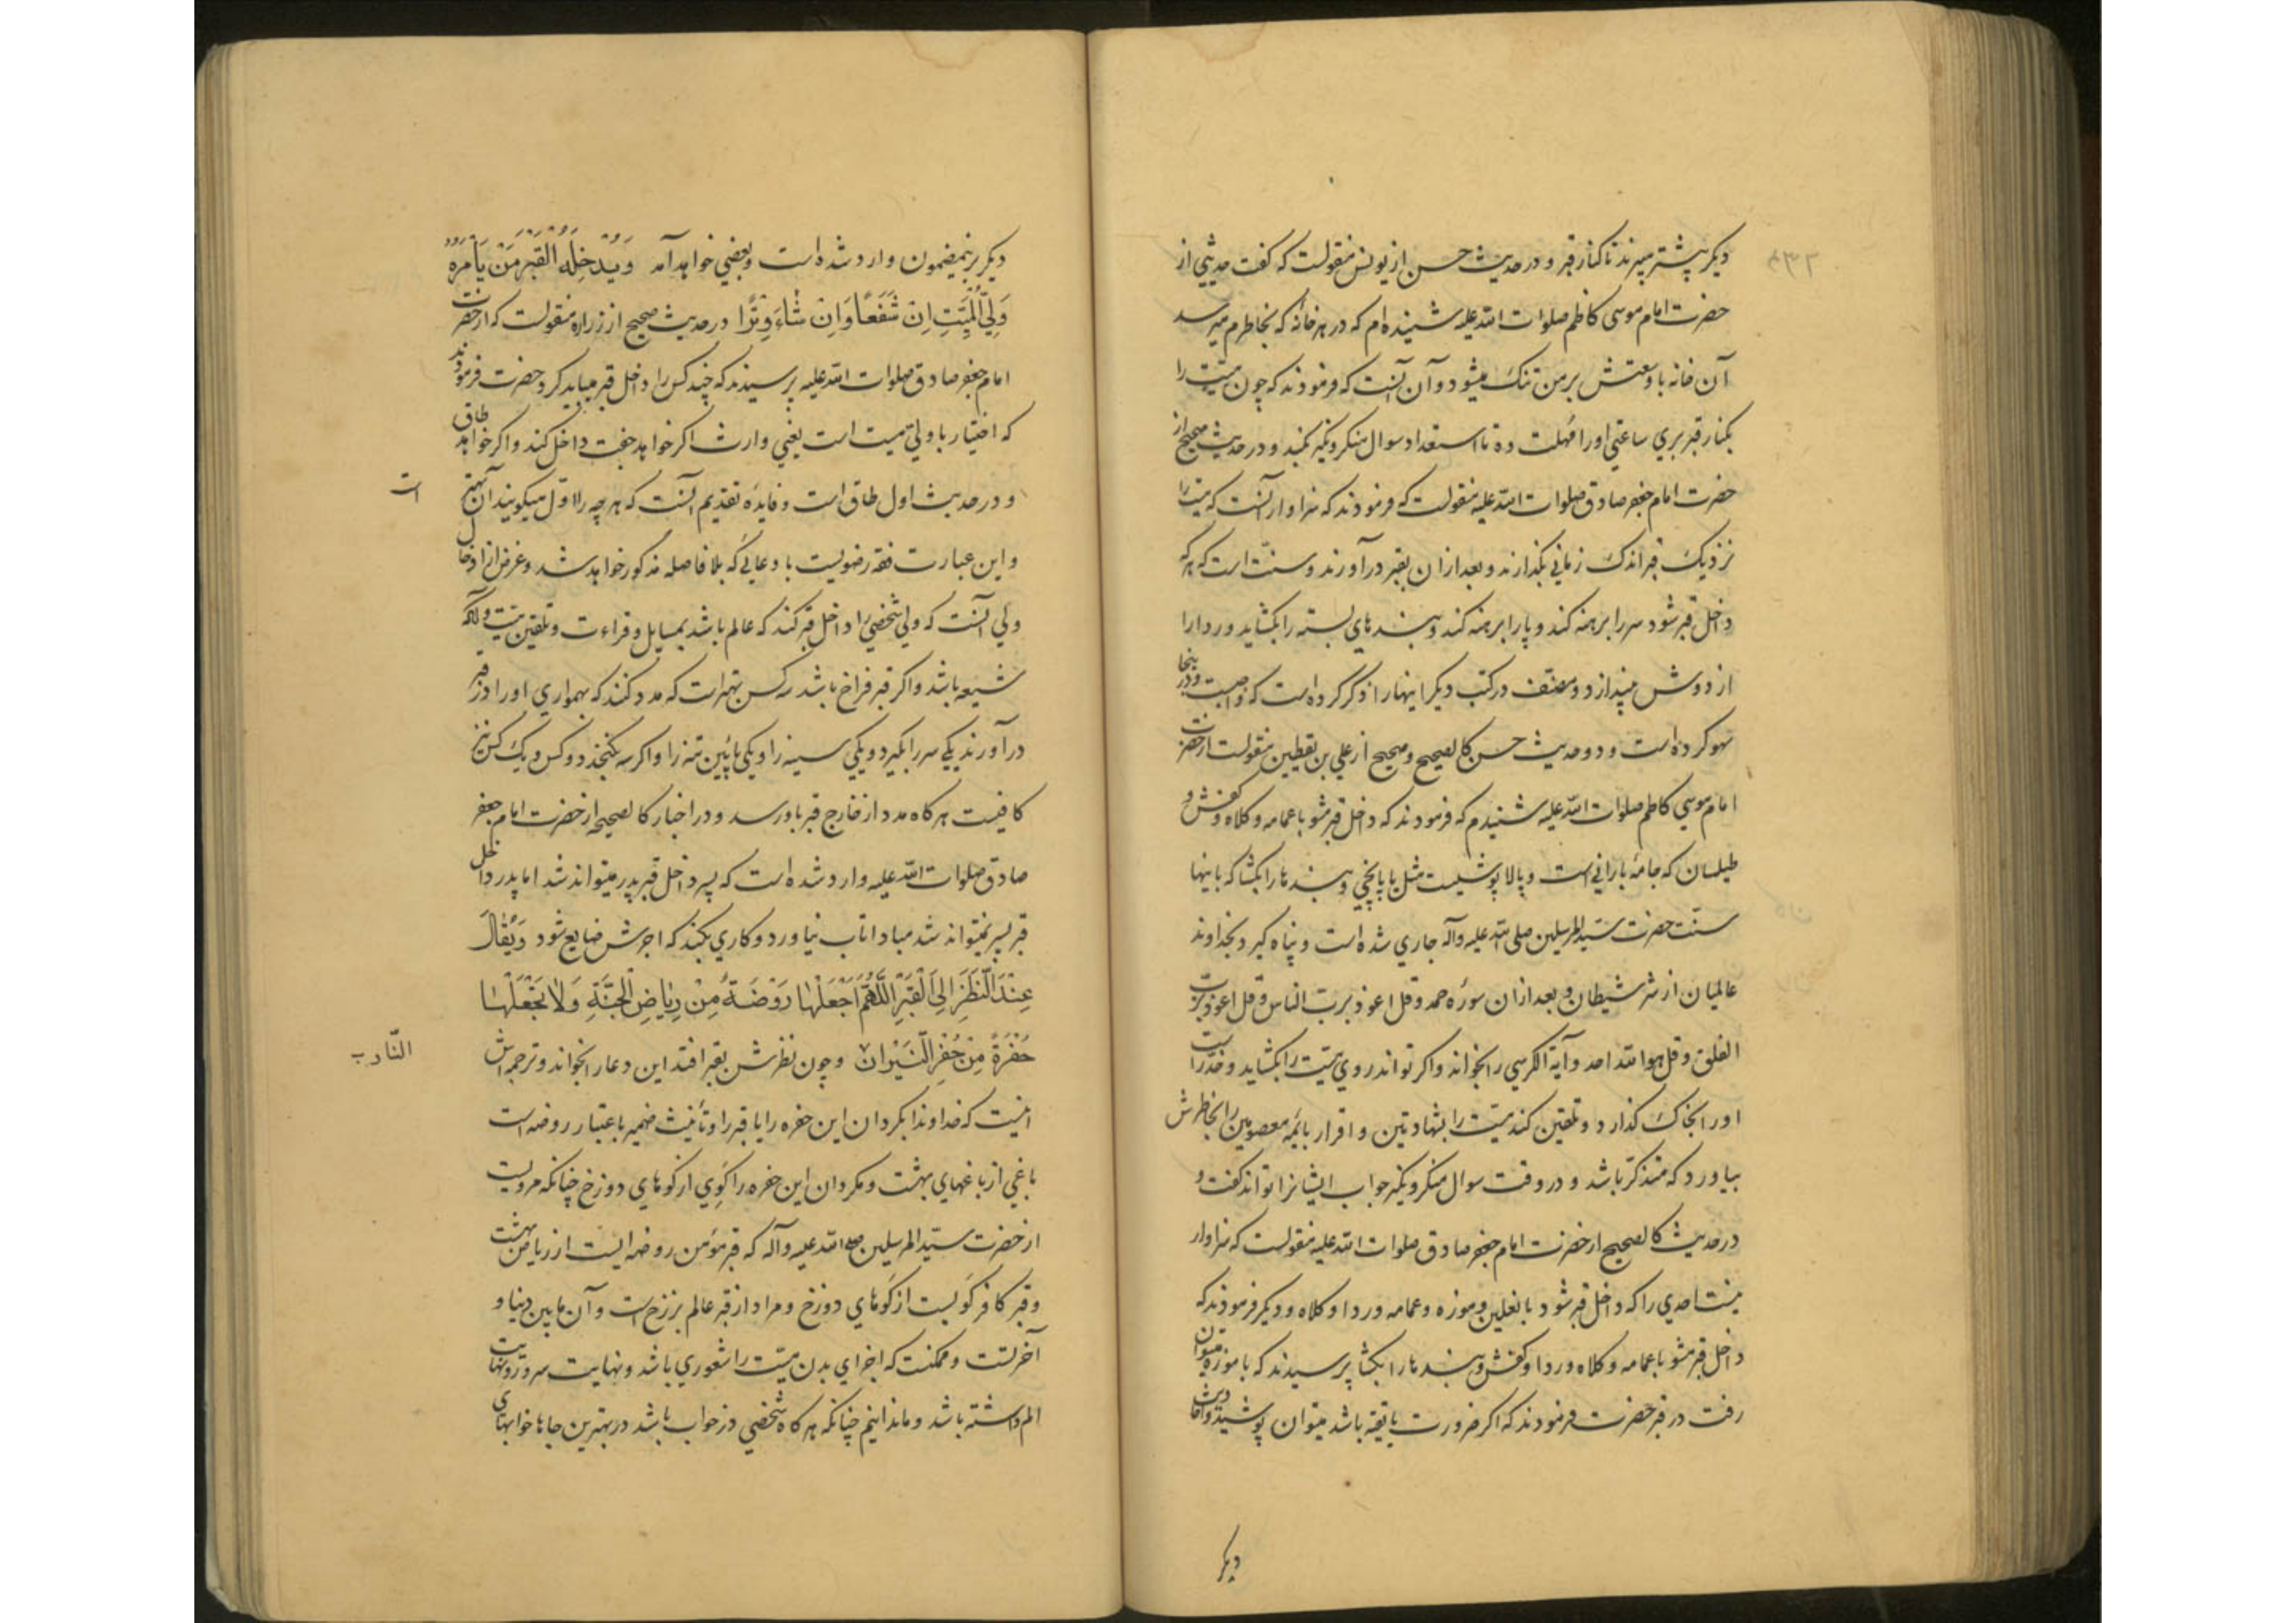 دیکر پیشتر میبرند تا کنار قبر و در حدیث حسن از یونس منقولست که کفت حدیثی از
حضرت امام موسی کاظم صلوات الله علیه شنیده ام که در هر خانه که بخاطرم میرسد
آن خانه با وسعتش بر من تنک میشود و آن آنست که فرمودند که چون میت را
بکنار قبر بری ساعتی او را مهلت ده تا استعداد سوال منکر و نکیر بکند و در حدیث صحیح از
حضرت امام جعفر صادق صلوات الله علیه منقولست که فرمودند که سزاوار آنست که میت را
نزدیک قبر اندک زمانی بکذارند و بعد از ان بقبر درآورند و سنت است که هر که
داخل قبر شود سر را برهنه کند و پا را برهنه کند و بندهای بسته را بکشاید و ردا را
از دوش بیندازد و مصنف در کتب دیکر اینها را ذکر کرده است که واجبست و در اینجا
سهو کرده است و دو حدیث حسن کالصحیح و صحیح از علی بن یقطین منقولست از حضرت
امام موسی کاظم صلوات الله علیه شنیدم که فرمودند که داخل قبر مشو با عمامه و کلاه و کفش و
طیلسان که جامه بارانی است و بالاپوشیست مثل یاپانچی و بندها را بکشا که باینها
سنت حضرت سید المرسلین صلی الله علیه وآله جاری شده است و پناه کیرد بخداوند
عالمیان از شر شیطان و بعد از ان سوره حمد و قل اعوذ برب الناس و قل اعوذ برب
الفلق و قل هو الله احد و آیة الکرسی را بخواند و اکر تواند روی میت را بکشاید و خد راست
او را بخاک کذارد و تلقین کند میت را بشهادتین و اقرار بائمه معصومین را بخاطرش
بیاورد که متذکر باشد و در وقت سوال منکر و نکیر جواب ایشانرا تواند کفت و
در حدیث کالصحیح از حضرت امام جعفر صادق صلوات الله علیه منقولست که سزاوار
نیست احدی را که داخل قبر شود با نعلین و موزه و عمامه و ردا و کلاه و دیکر فرمودند که
داخل قبر مشو با عمامه و کلاه و ردا و کفش و بندها را بکشا پرسیدند که با موزه میتوان
رفت در قبر حضرت فرمودند که اکر ضرورت یا تقیه باشد میتوان پوشید و احادیث
دیکر
دیکر برینمضمون وارد شده است و بعضی خواهد آمد وَیُدْخِلُهُ الْقَبْرَ مَنْ یَأْمُرُهُ
وَلِیُّ الْمَیِّتِ اِنْ شَاءَ شَفْعًا وَاِنْ شَاءَ وِتْرًا در حدیث صحیح از زراره منقولست که از حضرت
امام جعفر صادق صلوات الله علیه پرسیدند که چند کس را داخل قبر میباید کرد حضرت فرمودند
که اختیار با ولی میت است یعنی وارث اکر خواهد جفت داخل کند و اکر خواهد طاق
و در حدیث اول طاق است و فایده تقدیم آنست که هر چه را اول میکویند آن بهتر
است
و این عبارت فقه رضویست با دعائی که بلا فاصله مذکور خواهد شد و غرض از ادخال
ولی آنست که ولی شخصی را داخل قبر کند که عالم باشد بمسایل و قراءت و تلقین میت و لااقل
شیعه باشد و اکر قبر فراخ باشد سه کس بهتر است که مدد کنند که بهمواری او را در قبر
درآورند یکی سر را بکیرد و یکی سینه را و یکی پائین تنه را و اکر سه نکنجد دو کس و یک کس نیز
کافیست هر کاه مدد از خارج قبر باو رسد و در اخبار کالصحیحه از حضرت امام جعفر
صادق صلوات الله علیه وارد شده است که پسر داخل قبر پدر میتواند شد اما پدر داخل
قبر پسر نمیتواند شد مبادا تاب نیاورد و کاری بکند که اجرش ضایع شود وَیُقَالُ
عِنْدَ النَّظَرِ اِلَی الْقَبْرِ اَللّٰهُمَّ اجْعَلْهَا رَوْضَةً مِنْ رِیَاضِ الْجَنَّةِ وَلَا تَجْعَلْهَا
حُفْرَةً مِنْ حُفَرِ النِّیْرَانِ و چون نظرش بقبر افتد این دعا را بخواند و ترجمه اش
اینست که خداوندا بکردان این حفره را یا قبر را و تأنیث ضمیر باعتبار روضه است
باغی از باغهای بهشت و مکردان این حفره را کوی از کوهای دوزخ چنانکه مرویست
از حضرت سید المرسلین صلی الله علیه وآله که قبر مؤمن روضه ایست از ریاض بهشت
و قبر کافر کویست از کوهای دوزخ و مراد از قبر عالم برزخ است و آن ما بین دنیا و
آخرتست و ممکنست که اجزای بدن میت را شعوری باشد و نهایت سرور و نهایت
الم داشته باشد و ما ندانیم چنانکه هر کاه شخصی در خواب باشد در بهترین جاها خوابهای